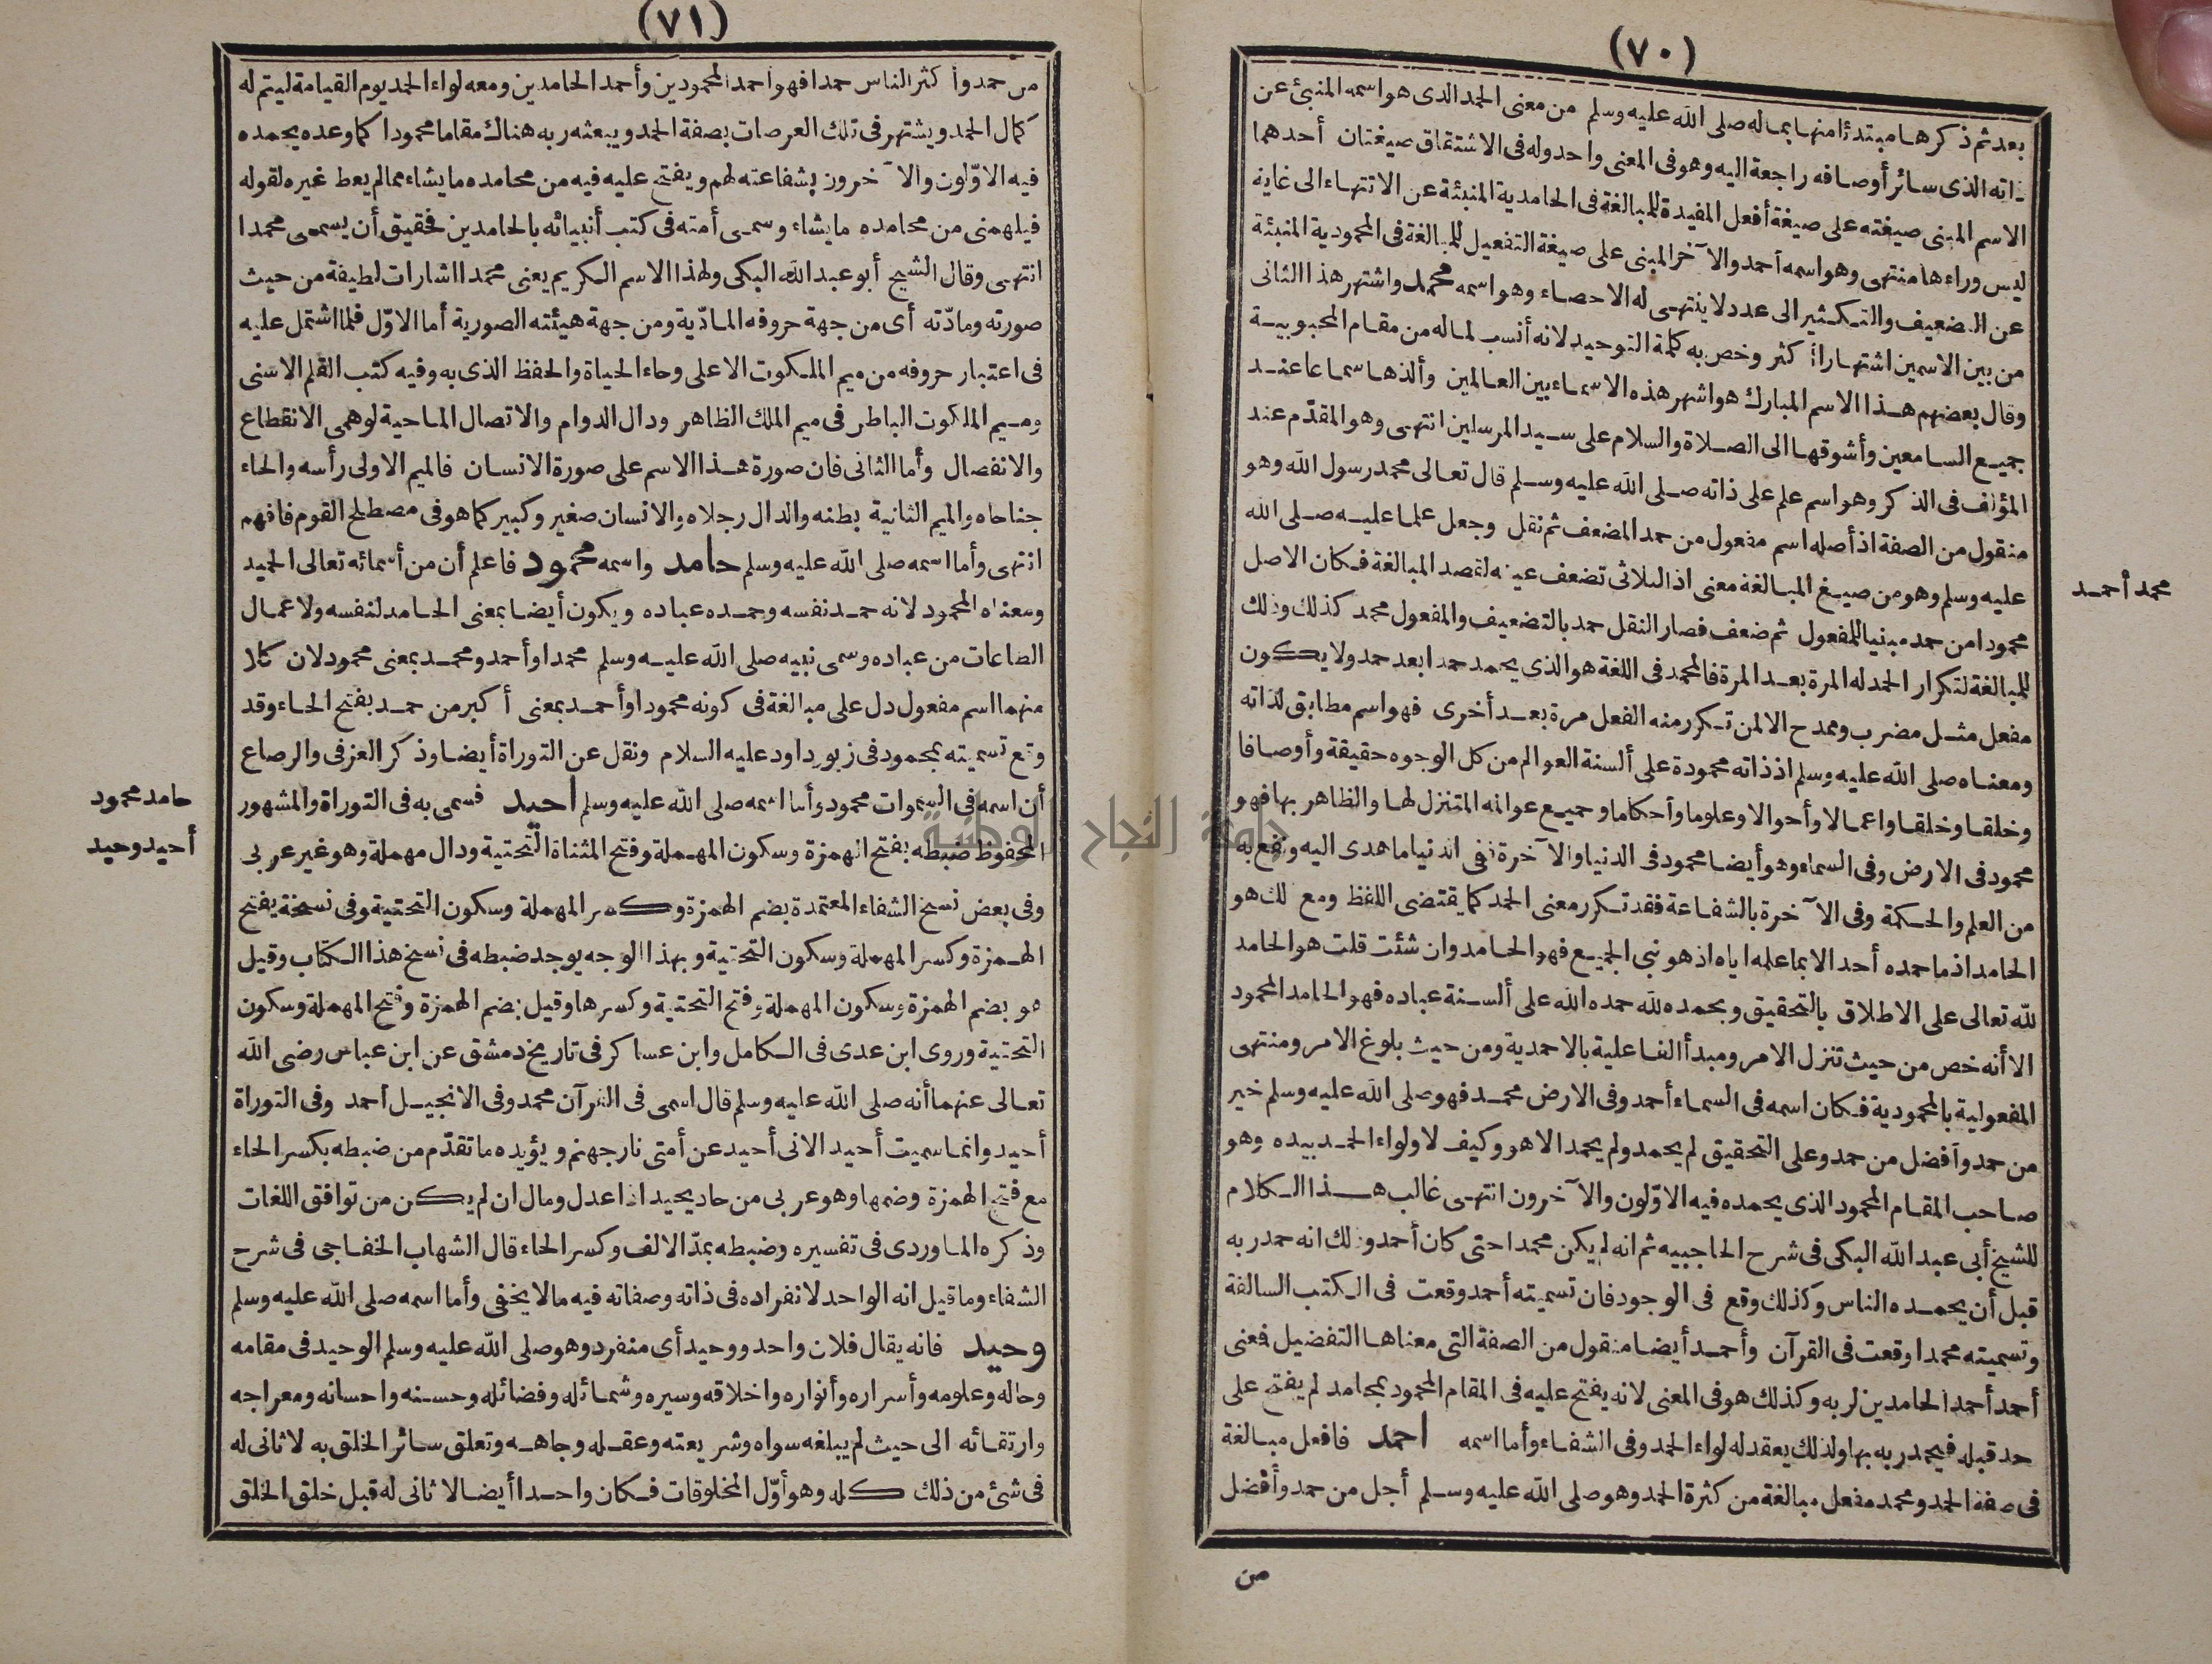 (٧٠)
بعد ثم ذكرها مبتدئا منها بما له صلى الله عليه وسلم من معنى الحمد الذى هو اسمه المنبئ عن
ذاته الذى سائر أوصافه راجعة اليه وهو فى المعنى واحد وله فى الاشتقاق صيغتان أحدهما
الاسم المبنى صيغته على صيغة أفعل المفيدة للمبالغة فى الحامدية المنبئة عن الانتهاء الى غاية
ليس وراءها منتهى وهو اسمه أحمد والآخر المبنى على صيغة التفعيل للمبالغة فى المحمودية المنبئة
عن التضعيف والتكثير الى عدد لا ينتهى له الاحصاء وهو اسمه محمد واشتهر هذا الثانى
من بين الاسمين اشتهارا أكثر وخص به كلمة التوحيد لانه أنسب لما له من مقام المحبوبية
وقال بعضهم هذا الاسم المبارك هو اشهر هذه الاسماء بين العالمين وألذها سماعا عند
جميع السامعين وأشوقها الى الصلاة والسلام على سيد المرسلين انتهى وهو المقدّم عند
المؤلف فى الذكر وهو اسم علم على ذاته صلى الله عليه وسلم قال تعالى محمد رسول الله وهو
منقول من الصفة اذ أصله اسم مفعول من حمد المضعف ثم نقل وجعل علما عليه صلى الله
عليه وسلم وهو من صيغ المبالغة معنى اذ الثلاثى تضعف عينه لقصد المبالغة فكان الاصل
محمد أحمد
محمودا من حمد مبنيا للمفعول ثم ضعف فصار النقل حمد بالتضعيف والمفعول محمد كذلك وذلك
للمبالغة لتكرار الحمد له المرة بعد المرة فالمحمد فى اللغة هو الذى يحمد حمدا بعد حمد ولا يكون
مفعل مثل مضرب وممدح الا لمن تكرر منه الفعل مرة بعد أخرى فهو اسم مطابق لذاته
ومعناه صلى الله عليه وسلم اذ ذاته محمودة على ألسنة العوالم من كل الوجوه حقيقة وأوصافا
وخلقا وخلقا واعمالا وأحوالا وعلوما وأحكاما وجميع عوالمه المتنزل لها والظاهر بها فهو
محمود فى الارض وفى السماء وهو أيضا محمود فى الدنيا والآخرة ففى الدنيا ما هدى اليه ونفع به
من العلم والحكمة وفى الآخرة بالشفاعة فقد تكرر معنى الحمد كما يقتضى اللفظ ومع ذلك هو
الحامد اذ ما حمده أحد الا بما علمه اياه اذ هو نبى الجميع فهو الحامد وان شئت قلت هو الحامد
لله تعالى على الاطلاق بالتحقيق وبحمده لله حمده الله على ألسنة عباده فهو الحامد المحمود
الا أنه خص من حيث تنزل الامر ومبدأ الفاعلية بالاحمدية ومن حيث بلوغ الامر ومنتهى
المفعولية بالمحمودية فكان اسمه فى السماء أحمد وفى الارض محمد فهو صلى الله عليه وسلم خير
من حمد وأفضل من حمد وعلى التحقيق لم يحمد ولم يحمد الا هو وكيف لا ولواء الحمد بيده وهو
صاحب المقام المحمود الذى يحمده فيه الاوّلون والآخرون انتهى غالب هذا الكلام
للشيخ أبى عبد الله البكى فى شرح الحاجبيه ثم انه لم يكن محمدا حتى كان أحمد وذلك انه حمد ربه
قبل أن يحمده الناس وكذلك وقع فى الوجود فان تسميته أحمد وقعت فى الكتب السالفة
وتسميته محمدا وقعت فى القرآن وأحمد أيضا منقول من الصفة التى معناها التفضيل فمعنى
أحمد أحمد الحامدين لربه وكذلك هو فى المعنى لانه يفتح عليه فى المقام المحمود بمحامد لم يفتح على
حد قبله فيحمد ربه بها ولذلك يعقد له لواء الحمد وفى الشفاء وأما اسمه أحمد فافعل مبالغة
فى صفة الحمد ومحمد مفعل مبالغة من كثرة الحمد وهو صلى الله عليه وسلم أجل من حمد وأفضل
من
(٧١)
من حمد وأكثر الناس حمدا فهو أحمد المحمودين وأحمد الحامدين ومعه لواء الحمد يوم القيامة ليتم له
كمال الحمد ويشتهر فى تلك العرصات بصفة الحمد ويبعثه ربه هناك مقاما محمودا كما وعده يحمده
فيه الاوّلون والآخرون بشفاعته لهم ويفتح عليه فيه من محامده ما يشاء مما لم يعط غيره لقوله
فيلهمنى من محامده ما يشاء وسمى أمته فى كتب أنبيائه بالحامدين فحقيق أن يسمى محمدا
انتهى وقال الشيخ أبو عبد الله البكى ولهذا الاسم الكريم يعنى محمدا اشارات لطيفة من حيث
صورته ومادّته أى من جهة حروفه المادّية ومن جهة هيئته الصورية أما الاوّل فلما اشتمل عليه
فى اعتبار حروفه من ميم الملكوت الاعلى وحاء الحياة والحفظ الذى به وفيه كتب القلم الاسنى
وميم الملكوت الباطن فى ميم الملك الظاهر ودال الدوام والاتصال الماحية لوهمى الانقطاع
والانفصال وأما الثانى فان صورة هذا الاسم على صورة الانسان فالميم الاولى رأسه والحاء
جناحاه والميم الثانية بطنه والدال رجلاه والانسان صغير وكبير كما هو فى مصطلح القوم فافهم
انتهى وأما اسمه صلى الله عليه وسلم حامد واسمه محمود فاعلم أن من أسمائه تعالى الحميد
ومعناه المحمود لانه حمد نفسه وحمده عباده ويكون أيضا بمعنى الحامد لنفسه ولاعمال
الطاعات من عباده وسمى نبيه صلى الله عليه وسلم محمدا وأحمد ومحمد بمعنى محمود لان كلا
منهما اسم مفعول دل على مبالغة فى كونه محمودا وأحمد بمعنى أكبر من حمد بفتح الحاء وقد
وقع تسميته بمحمود فى زبور داود عليه السلام ونقل عن التوراة أيضا وذكر العزفى والرصاع
أن اسمه فى السموات محمود وأما اسمه صلى الله عليه وسلم أحيد فسمى به فى التوراة والمشهور
حامد محمود
المحفوظ ضبطه بفتح الهمزة وسكون المهملة وفتح المثناة التحتية ودال مهملة وهو غير عربى
أحيد وحيد
وفى بعض نسخ الشفاء المعتمدة بضم الهمزة وكسر المهملة وسكون التحتية وفى نسخة بفتح
الهمزة وكسر المهملة وسكون التحتية وبهذا الوجه يوجد ضبطه فى نسخ هذا الكتاب وقيل
هو بضم الهمزة وسكون المهملة وفتح التحتية وكسرها وقيل بضم الهمزة وفتح المهملة وسكون
التحتية وروى ابن عدى فى الكامل وابن عساكر فى تاريخ دمشق عن ابن عباس رضى الله
تعالى عنهما أنه صلى الله عليه وسلم قال اسمى فى القرآن محمد وفى الانجيل أحمد وفى التوراة
أحيد وانما سميت أحيد الانى أحيد عن أمتى نار جهنم ويؤيده ما تقدّم من ضبطه بكسر الحاء
مع فتح الهمزة وضمها وهو عربى من حاد يحيد اذا عدل ومال ان لم يكن من توافق اللغات
وذكره الماوردى فى تفسيره وضبطه بمدّ الالف وكسر الحاء قال الشهاب الخفاجى فى شرح
الشفاء وما قيل انه الواحد لانفراده فى ذاته وصفاته فيه ما لا يخفى وأما اسمه صلى الله عليه وسلم
وحيد فانه يقال فلان واحد ووحيد أى منفرد وهو صلى الله عليه وسلم الوحيد فى مقامه
وحاله وعلومه وأسراره وأنواره واخلاقه وسيره وشمائله وفضائله وحسنه واحسانه ومعراجه
وارتقائه الى حيث لم يبلغه سواه وشريعته وعقله وجاهه وتعلق سائر الخلق به لا ثانى له
فى شئ من ذلك كله وهو أوّل المخلوقات فكان واحدا أيضا لا ثانى له قبل خلق الخلق
جامعة النجاح الوطنية